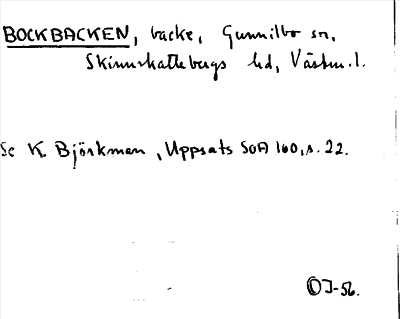 BOCKBACKEN, backe, Gunnilbo sn,
Skinnskattebergs hd, Västm. l.
Se K. Björkman, Uppsats SOA 160, s. 22.
OJ-56.